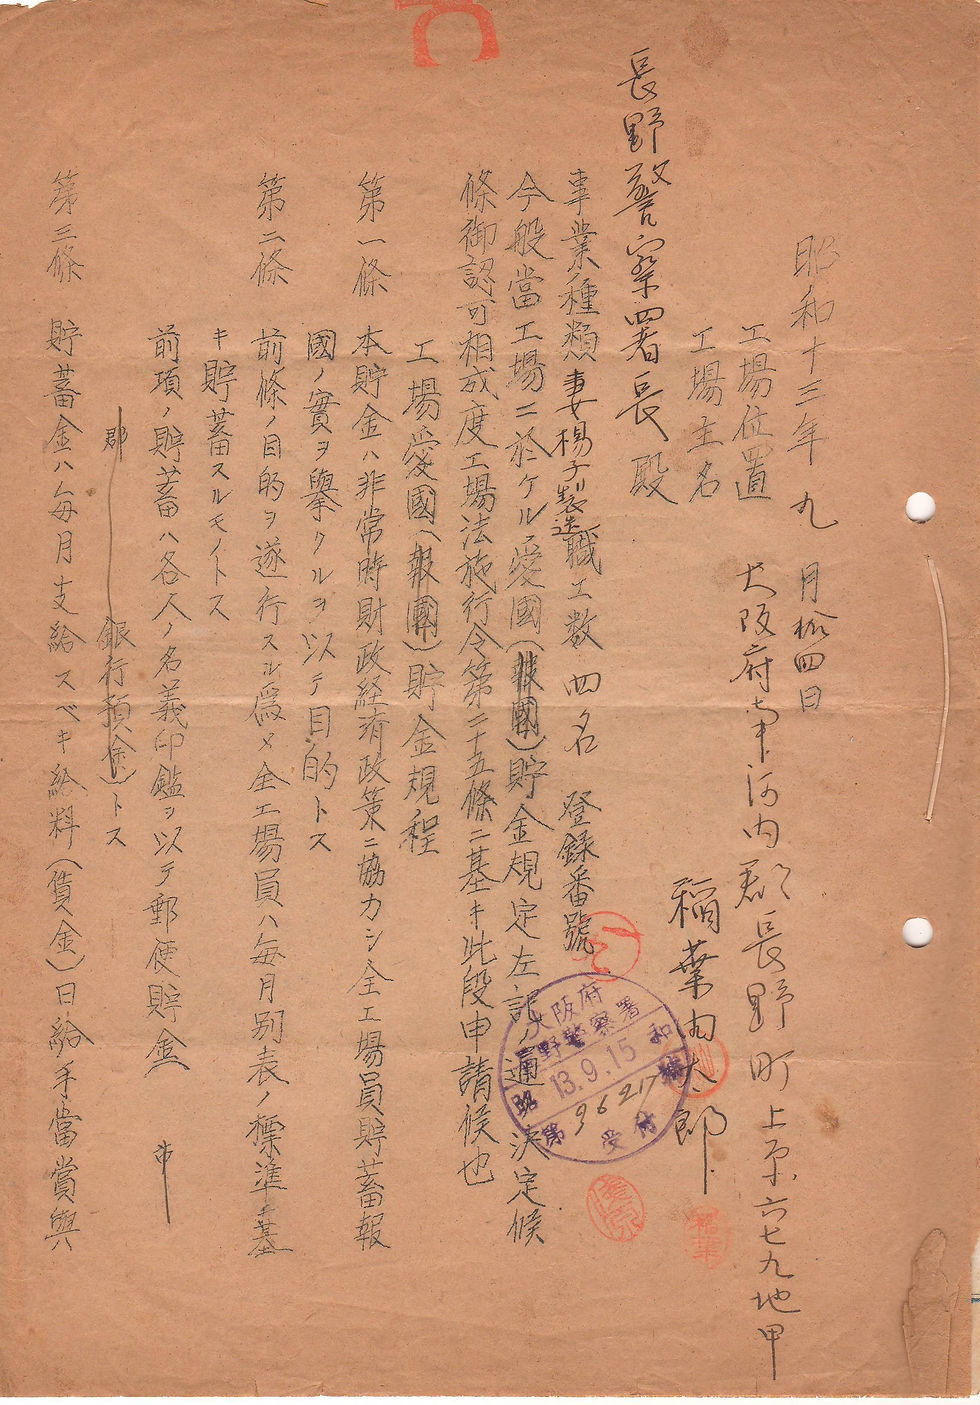 昭和十三年 九 月 拾四日
工場位置 大阪府南河内郡長野町上原六七九地甲
工場主名 稲葉由太郎
長野警察署長 殿
事業ノ種類 妻楊子製造 職工数 四名 登録番號
今般當工場ニ於ケル愛國(報國)貯金規定左記ノ通決定候
條御認可相成度工場法施行令第二十五條ニ基キ此段申請候也
工場愛國(報國)貯金規程
第一條 本貯金ハ非常時財政経済政策ニ協力シ全工場員貯蓄報
國ノ實ヲ擧クルヲ以テ目的トス
第二條 前條ノ目的ヲ遂行スル為メ全工場員ハ毎月別表ノ標準ニ基
キ貯蓄スルモノトス
前項ノ貯蓄ハ各人ノ名義印鑑ヲ以テ郵便貯金 市
郡 銀行預金)トス
第三條 貯蓄金ハ毎月支給スベキ給料(賃金)日給手當賞與
大阪府
長野警察署
昭和 13.9.15
第 9621 受付